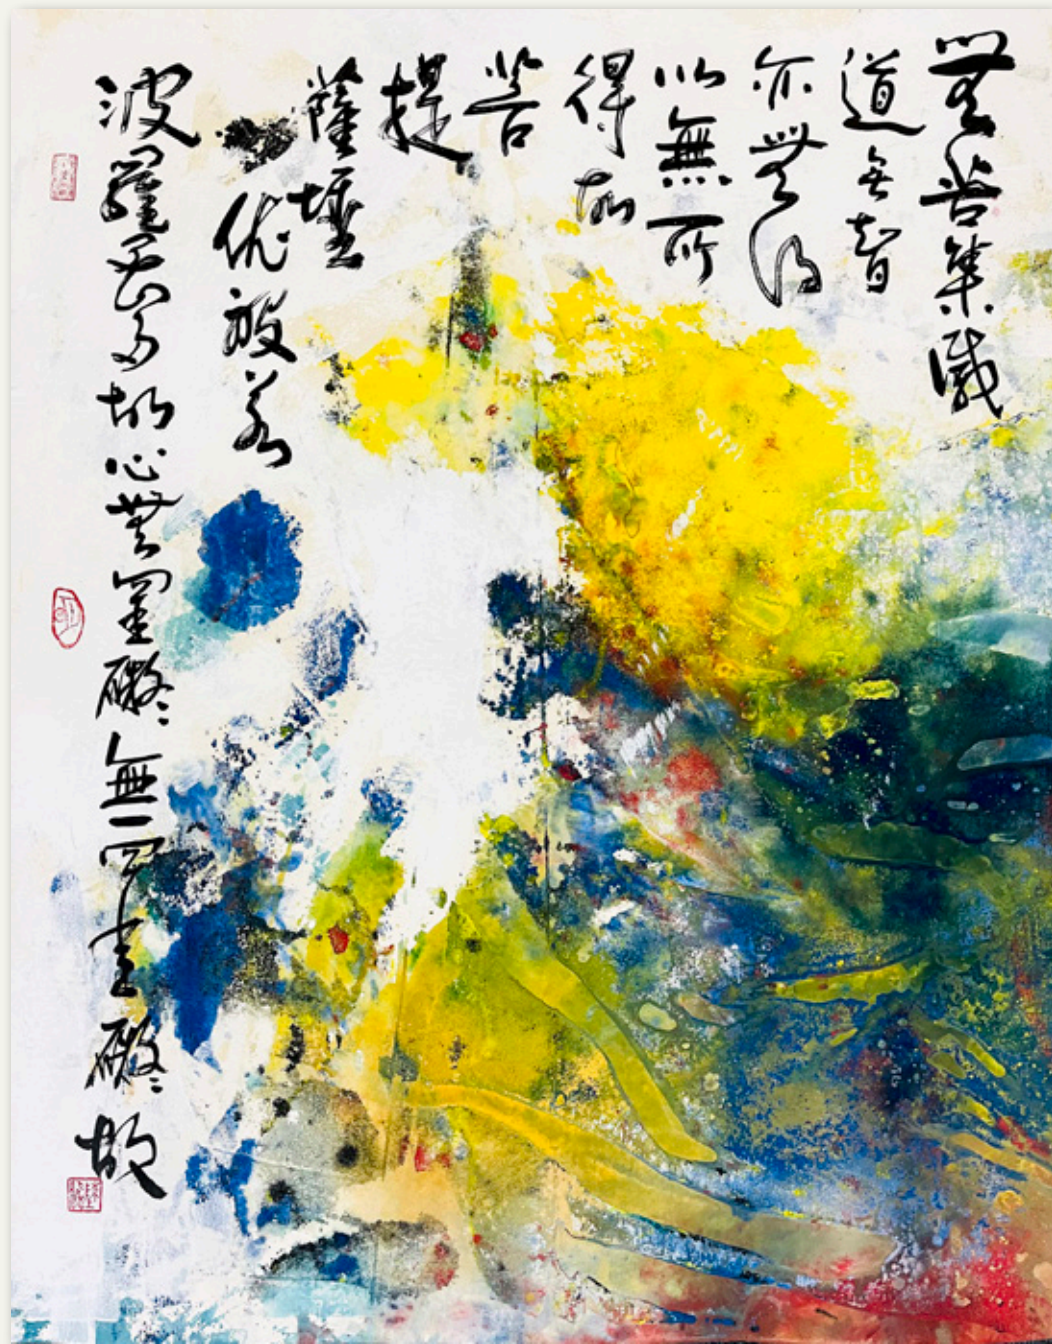 無苦集滅
道無智
亦無得
以無所
得故
菩
提
薩埵
依般若
波羅蜜多故心無罣礙無罣礙故